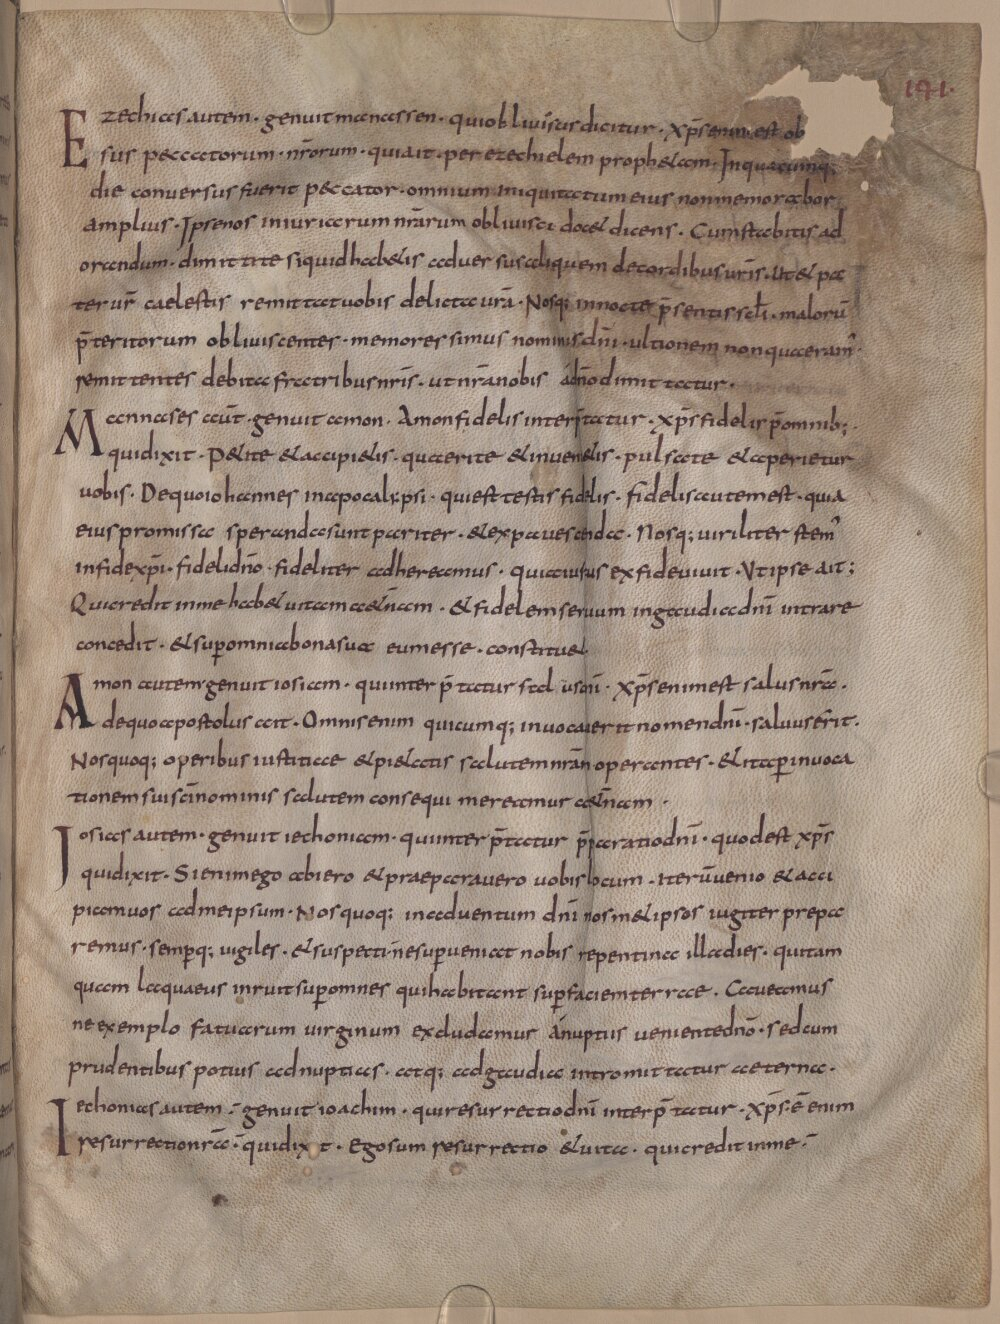 191.
Ezechias autem · genuit manassen · qui obliviosus dicitur · xp̄s enim est ob
sus peccatorum · nr̄orum · quia it · per ezechielem prophetam · In quacumq;
die conversus fuerit peccator · omnium iniquitatum eius non memorabor
amplius · Ipse nos iniuriarum nr̄arum oblivisci docet dicens . Cum stabitis ad
orandum · dimittite si quid habetis adversus aliquem de cordibus vr̄is · Ut et pa
ter vr̄ caelestis remittat vobis delicta vr̄a · Nosq; in nocte p̄sentis scl̄i · malorū
p̄teritorum obliviscentes · memores simus nominis dn̄i · ultionem non quaeram̄ ·
remittentes debita fratribus nr̄is · ut nr̄a nobis a dn̄o dimittatur ·
Manases aūt · genuit amon · Amon fidelis interp̄tatur · xp̄s fidelis p̄ omnib; ·
qui dixit · Petite et accipietis · quaerite et invenietis · pulsate et aperietur
vobis · De quo iohannes in apocalypsi · qui est testis fidelis · fidelis autem est · quia
eius promissa speranda sunt pariter · et expavescenda · Nosq; viriliter stem̄
in fide xp̄i · fideli dn̄o · fideliter adhereamus · quia iustus ex fide vivit · Ut ipse ait ;
Qui credit in me habet vitam aet̄nam · et fidelem servum in gaudia dn̄i intrare
concedit · et sup̄ omnia bona sua eum esse · constituet
Amon autem genuit iosiam · qui interp̄tatur sal us dn̄i · xp̄s enim est salus nr̄a .
de quo apostolus ait · Omnis enim quicumq; invocaverit nomen dn̄i · salvus erit .
Nos quoq; operibus iustitiae et pietatis salutem nr̄am operantes · et ita p̄ invoca
tionem sui sc̄i nominis salutem consequi mereamur aet̄nam ·
Iosias autem · genuit iechoniam · qui interp̄tatur p̄paratio dn̄i · quod est xp̄s
qui dixit · Si enim ego abiero et praeparavero vobis locum · iterū venio et acci
piam vos ad me ipsum · Nos quoq; in adventum dn̄i nosmet ipsos iugiter prepa
remus · semp̄q; vigiles · et suspecti · ne sup̄veniat nobis repentina illa dies · qui tam
quam laquaeus inruit sup̄ omnes qui habitant sup̄ faciem terrae . Caveamus
ne exemplo fatuarum virginum excludamur a nuptiis veniente dn̄o · sed cum
prudentibus potius ad nuptias · atq; ad gaudia intromittatur aeterna ·
Iechonias autem · genuit ioachim · qui resurrectio dn̄i interp̄tatur · xp̄s · ē enim
resurrectio nr̄a · qui dixit · Ego sum resurrectio et vita · qui credit in me ·